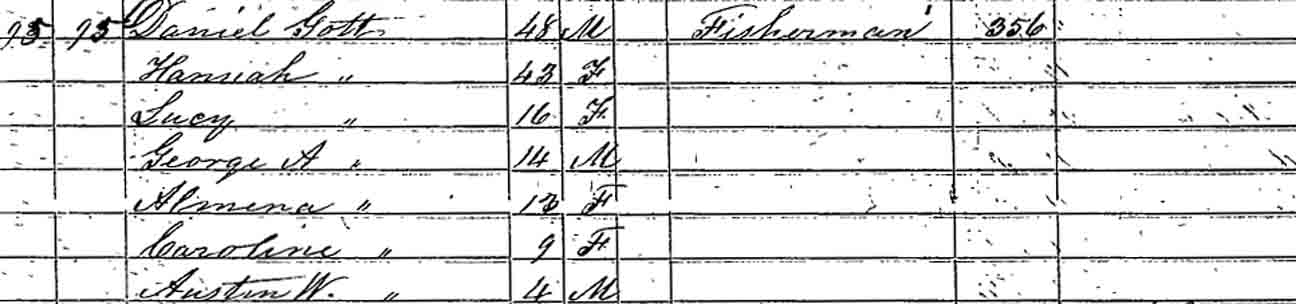 75 75 Daniel Gott 48 M Fisherman 356
Hannah " 43 F
Lucy " 16 F
George A " 14 M
Almena " 13 F
Caroline " 9 F
Austin W. " 4 M